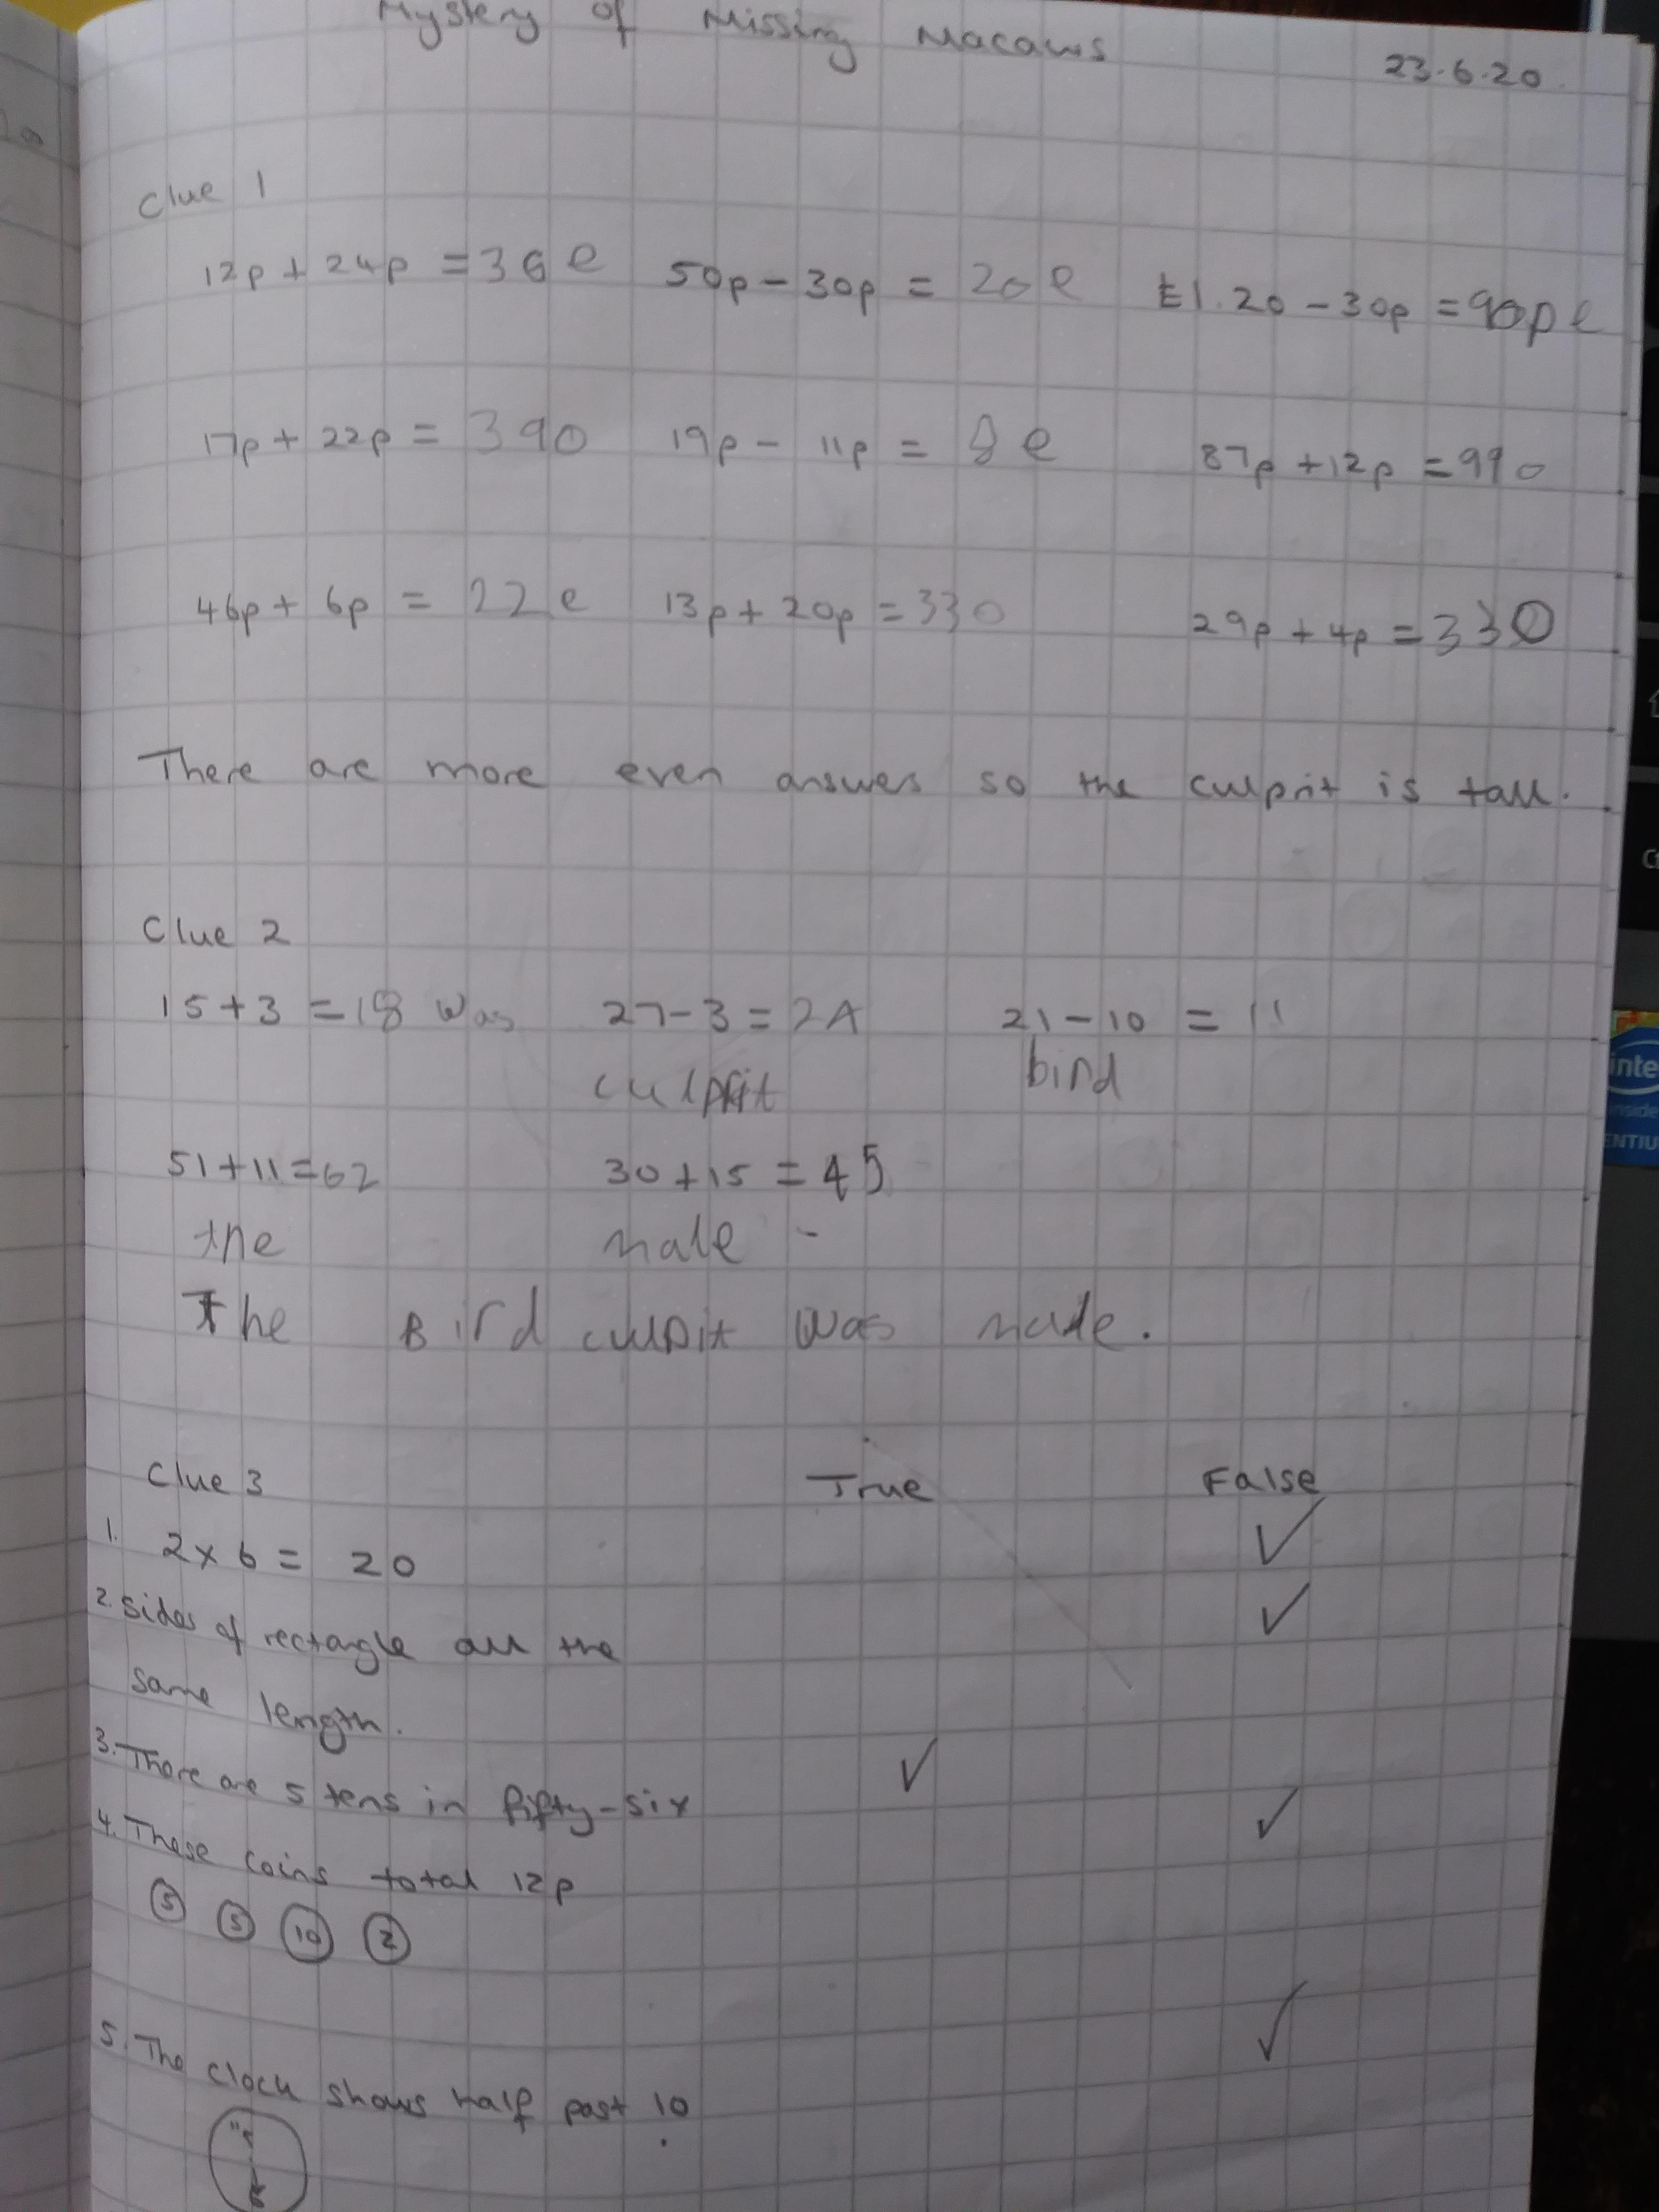 Mystery of Missing Macaws
23.6.20
Clue 1
12p + 24p = 36 e 50p - 30p = 20 e £1.20 - 30p = 90p e
17p + 22p = 39 o 19p - 11p = 8 e 87p + 12p = 99 o
46p + 6p = 22 e 13p + 20p = 33 o 29p + 4p = 33 o
There are more even answes so the culprit is tall.
Clue 2
15 + 3 = 18 was 27 - 3 = 24 21 - 10 = 11
culprit bird
51 + 11 = 62 30 + 15 = 45
the male
The Bird culpit was male.
Clue 3 True False
1. 2 x 6 = 20 ✓
2. Sides of rectangle all the ✓
same length.
3. There are 5 tens in fifty-six ✓
4. These coins total 12p ✓
5 5 10 2
5. The clock shows half past 10 ✓
11
6
inte
inside
ENTIU